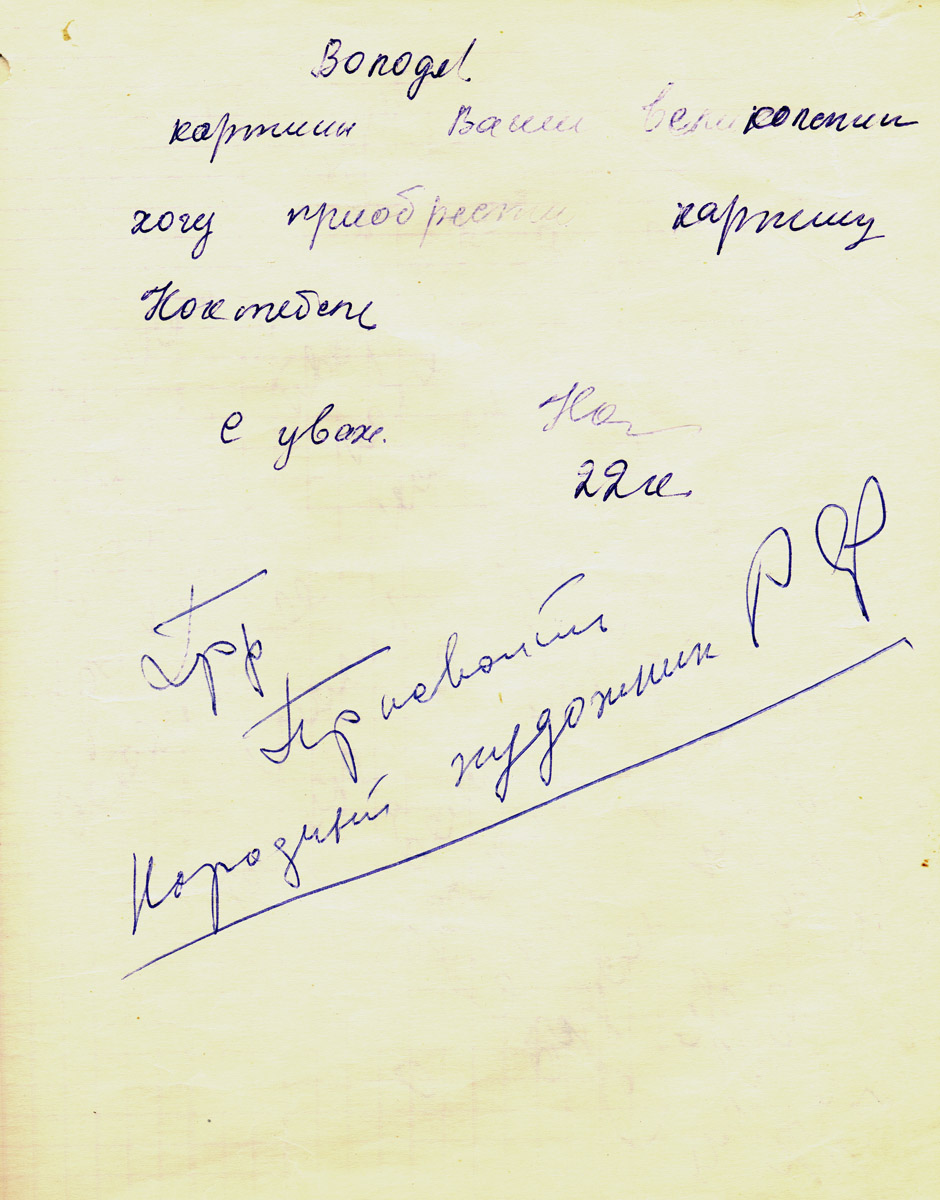 Володя
картины Ваши великолепны
хочу приобрести картину
Коктебель
С уваж.
Народный художник РФ